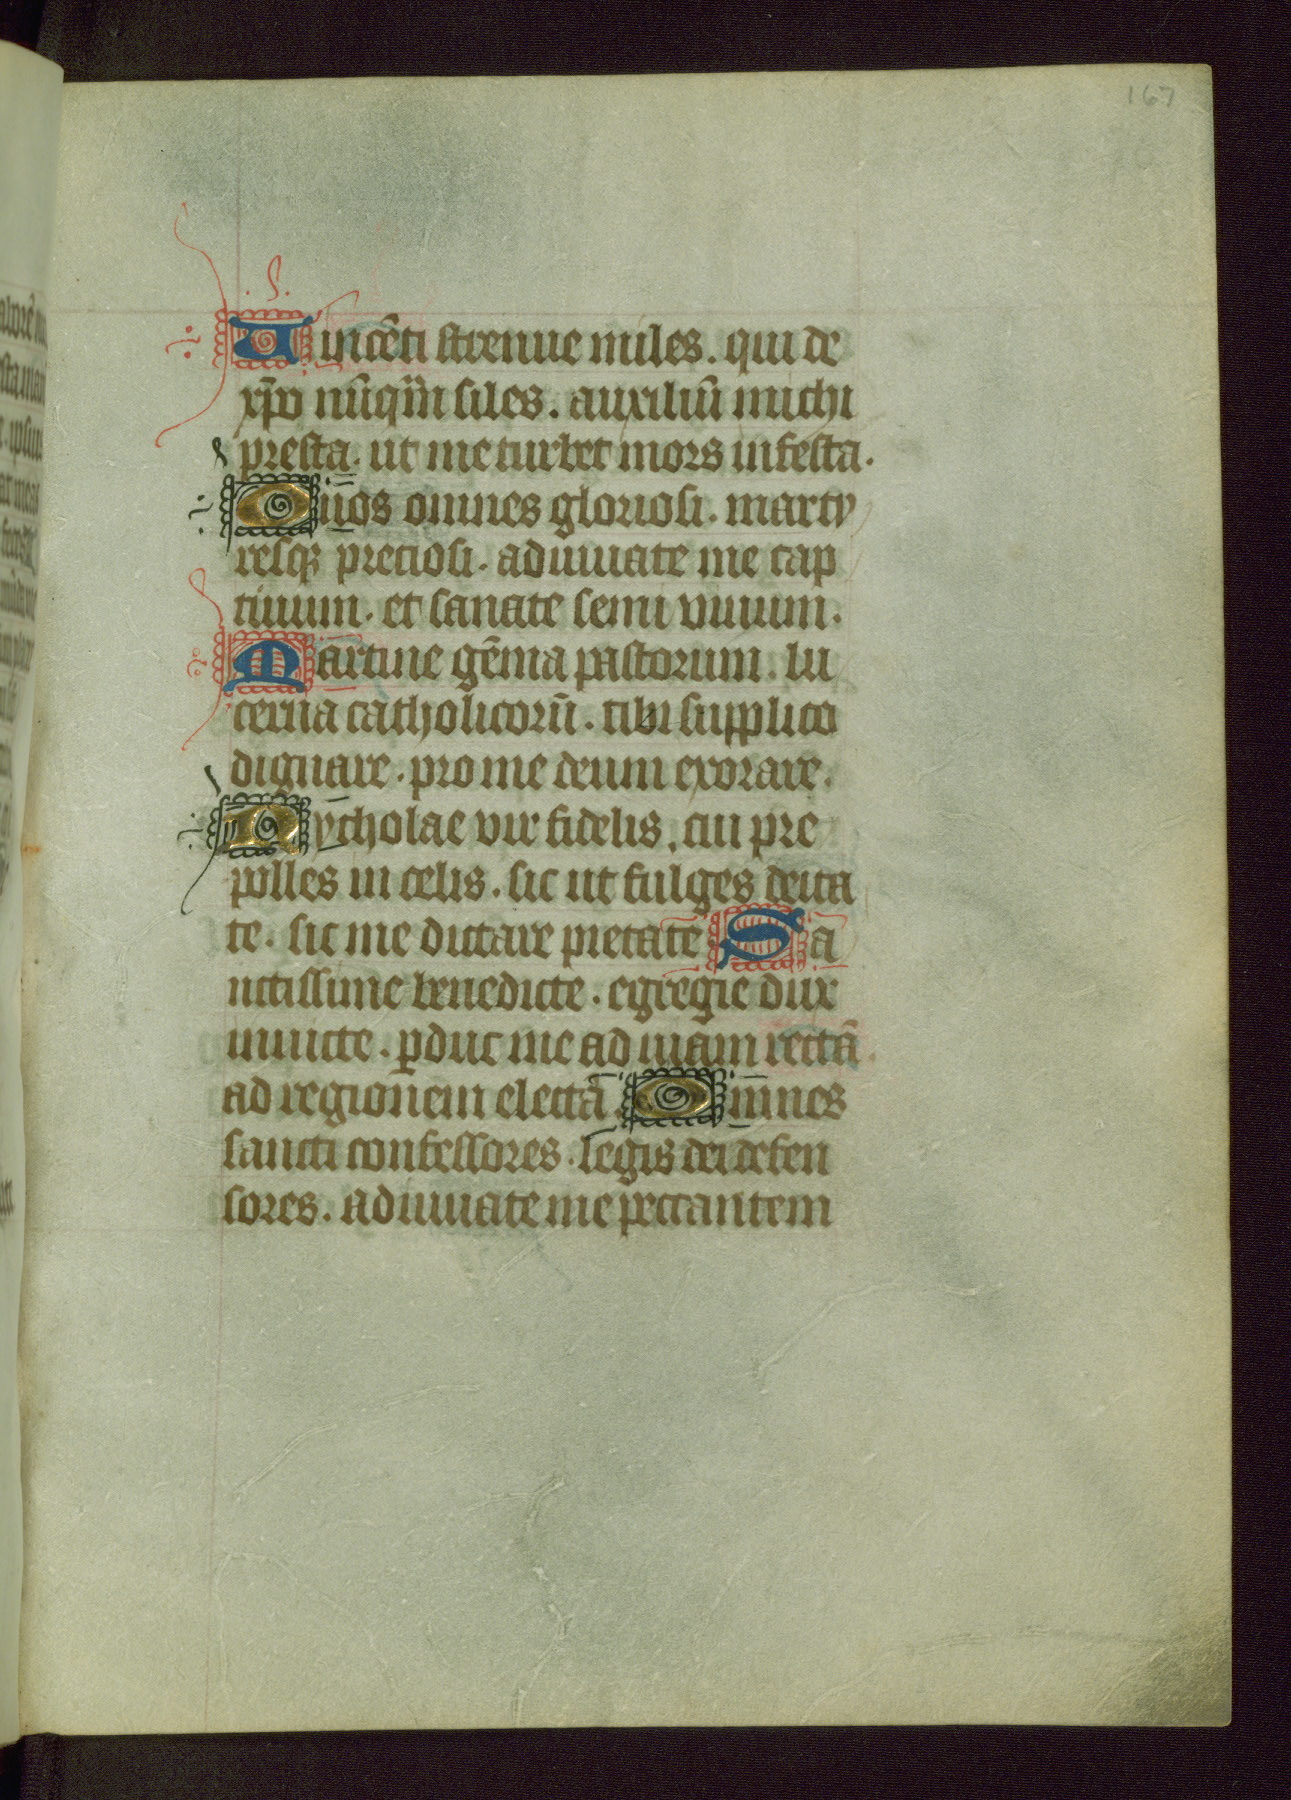 167
Uincēti strenue miles. qui de
xp̄o nūq̄m siles. auxiliū michi
presta. ut me turbet mors infesta.
O uos omnes gloriosi. marty
resq; preciosi. adiuuate me cap
tiuum. et sanate semi uiuum.
Martine gēma pastorum. lu
cerna catholicorū. tibi supplico
dignare. pro me deum exorare.
Nycholae vir fidelis, cui pre
polles in celis. sic ut fulges deita
te. sic me dictare pietate Sa
nctissime benedicte. egregie dux
inuicte. ꝑduc me ad uiam rectā.
ad regionem electā. Omnes
sancti confessores. legis dei defen
sores. adiuuate me peccantem